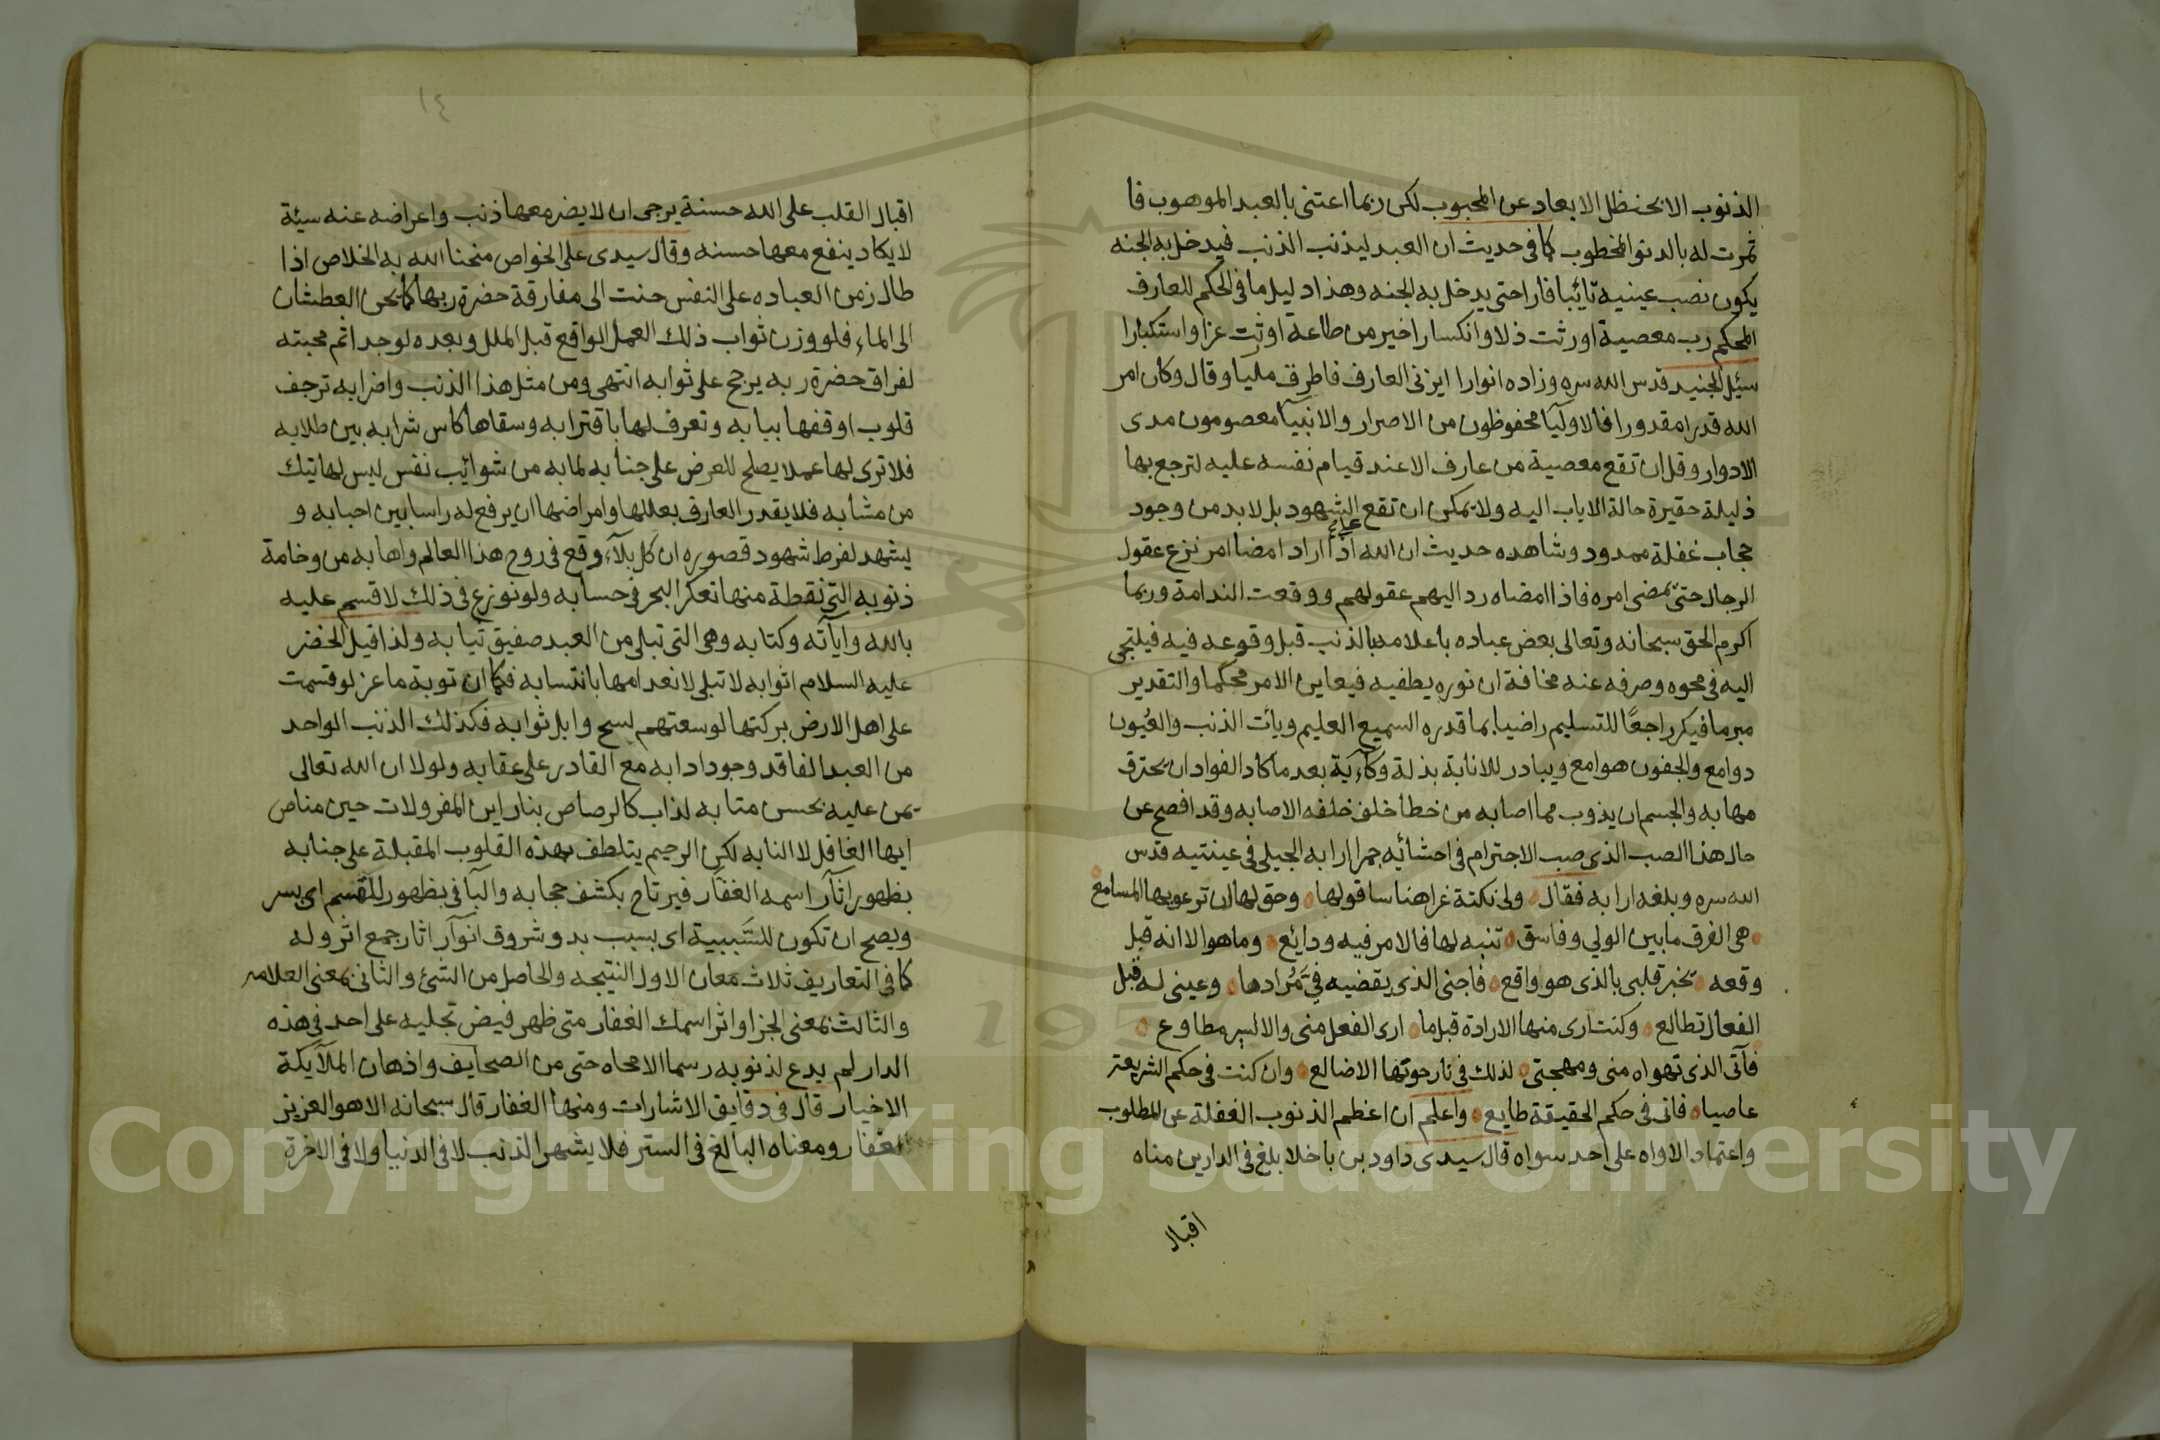 الذنوب الا بحنظل الابعاد عن المحبوب لكن ربما اعتنى بالعبد الموهوب فا
ثمرت له بالدنو المخطوب كما فى حديث ان العبد ليذنب الذنب فيدخل به الجنه
يكون نصب عينيه تائبا فارا حتى يدخل به الجنه وهذا دليل ما فى الحكم للعارف
المحكم رب معصية اورثت ذلا وانكسارا خير من طاعة اوثت عزا واستكبارا
سئل الجنيد قدس الله سره وزاده انوارا ايزنى العارف فاطرق مليا وقال وكان امر
الله قدرا مقدورا فالاوليآ محفوظون من الاصرار والانبيآ معصومون مدى
الادوار وقل ان تقع معصية من عارف الا عند قيام نفسه عليه لترجع بها
ذليلة حقيرة حالة الاياب اليه ولا يمكن ان تقع الشهود بل لابد من وجود
حجاب غفلة ممدود وشاهده حديث ان الله اذا اراد امضا امر نزع عقول
الرجال حتى يمضى امره فاذا امضاه رد اليهم عقولهم ووقعت الندامة وربما
اكرم الحق سبحانه وتعالى بعض عباده باعلامه بالذنب قبل وقوعه فيه فيلتجى
اليه فى محوه وصرفه عنه مخافة ان نوره يطفيه فيعاين الامر محكما والتقدير
مبرما فيكر راجعًا للتسليم راضيا بما قدره السميع العليم ويأت الذنب والعُيون
دوامع والجفون هوامع ويبادر للانابة بذلة وكآبة بعد ما كاد الفواد ان يحترق
مهابه والجسم ان يذوب مما اصابه من خطأ خلف خلفه الاصابه وقد افصح عن
حال هذا الصب الذى صب الاجترام فى احشائه جمرا ارا به الجيلى فى عينيته قدس
الله سره وبلغه ارا به فقال ولى نكتة غرا هنا ساقولها وحق لها ان ترعويها المسامع
هى الفرق ما بين الولي وفاسق تنبه لها فالامر فيه ودائع وما هو الا انه قبل
وقعه يخبر قلبى بالذى هو واقع فاجنى الذى يقضيه فِي مُرادها وعينى له قبل
الفعال تطالع وكنت ارى منها الارادة قبل ما ارى الفعل منى والاسير مطاوع
فآتى الذى تهواه منى ومهجتى لذلك فى نار حوتها الاضالع وان كنت فى حكم الشريعة
عاصيا فانى فى حكم الحقيقة طايع واعلم ان اعظم الذنوب الغفلة عن المطلوب
واعتماد الاواه على احد سواه قال سيدى داود بن باخلا بلغ فى الدارين مناه
اقبال
١٤
اقبال القلب على الله حسنة يرجى ان لا يضر معها ذنب واعراضه عنه سيئة
لا يكاد ينفع معها حسنه وقال سيدى على الخواص منحنا الله به الخلاص اذا
طال زمن العباده على النفس حنت الى مفارقة حضرة ربها كما يحن العطشان
الى الماء فلو وزن ثواب ذلك العمل الواقع قبل الملل وبعده لوجد اثم محبته
لفراق حضرة ربه يرجح على ثوابه انتهى ومن مثل هذا الذنب واضرابه ترجف
قلوب اوقفها ببابه وتعرف لها باقترابه وسقاها كاس شرابه بين طلابه
فلا ترى لها عملا يصلح للعرض على جنابه لما به من شوائب نفس ليس لها تيك
من مشابه فلا يقدر العارف بعللها وامراضها ان يرفع له راسا بين احبابه و
يشهد لفرط شهود قصوره ان كل بلآء وقع فى روح هذا العالم واهابه من وخامة
ذنوبه التى نقطة منها تعكر البحر فى حسابه ولو نوزع فى ذلك لاقسم عليه
بالله وآياته وكتابه وهى التى تبلى من العبد صفيق ثيابه ولذا قيل الخضر
عليه السلام اثوابه لا تبلى لانعدامها بانتسابه فكما ان توبة ماعز لو قسمت
على اهل الارض بركتها لوسعتهم بسح وابل ثوابه فكذلك الذنب الواحد
من العبد الفاقد وجود ادابه مع القادر على عقابه ولولا ان الله تعالى
يمن عليه بحسن متابه لذاب كالرصاص بنار اين المفر ولات حين مناص
ايها الغافل لا النابه لكن الرحيم يتلطف بهذه القلوب المقبلة على جنابه
بظهور اثآر اسمه الغفآر فيرتاح بكشف حجابه والبآ فى بظهور للقسم اى بسر
ويصح ان تكون للسَّببية اى بسبب بدو شروق انوآر اثار جمع اثر وله
كما فى التعاريف ثلاث مَعان الاول النتيجه والحاصل من الشئ والثانى بمعنى العلامه
والثالث بمعنى الجزا واثر اسمك الغفار متى ظهر فيض تجليه على احد فى هذه
الدار لم يدع لذنوبه رسما الا محاه حتى من الصحايف واذهان الملآيكة
الاخيار قال فى دقايق الاشارات ومنها الغفار قال سبحانه الا هو العزيز
الغفار ومعناه البالغ فى الستر فلا يشهر الذنب لا فى الدنيا ولا فى الاخرة
Copyright © King Saud University